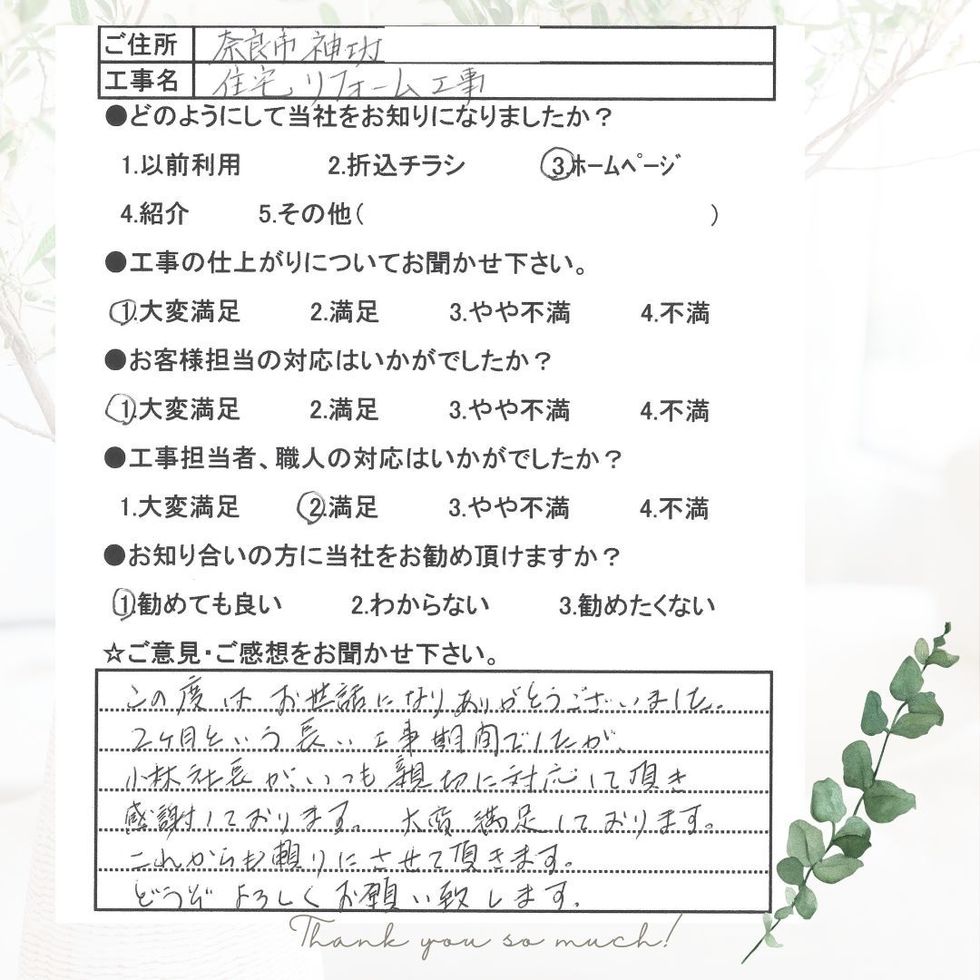 ご住所 奈良市 神功
工事名 住宅リフォーム工事
●どのようにして当社をお知りになりましたか？
1.以前利用 2.折込チラシ 3.ホームページ
4.紹介 5.その他( )
●工事の仕上がりについてお聞かせ下さい。
1.大変満足 2.満足 3.やや不満 4.不満
●お客様担当の対応はいかがでしたか？
1.大変満足 2.満足 3.やや不満 4.不満
●工事担当者、職人の対応はいかがでしたか？
1.大変満足 2.満足 3.やや不満 4.不満
●お知り合いの方に当社をお勧め頂けますか？
1.勧めても良い 2.わからない 3.勧めたくない
☆ご意見・ご感想をお聞かせ下さい。
この度は お世話になりありがとうございました。
2ヶ月という長い工事期間でしたが、
小林社長が、いつも親切に対応して頂き
感謝しております。 大変満足しております。
これからも頼りにさせて頂きます。
どうぞ よろしくお願い致します。
Thank you so much!